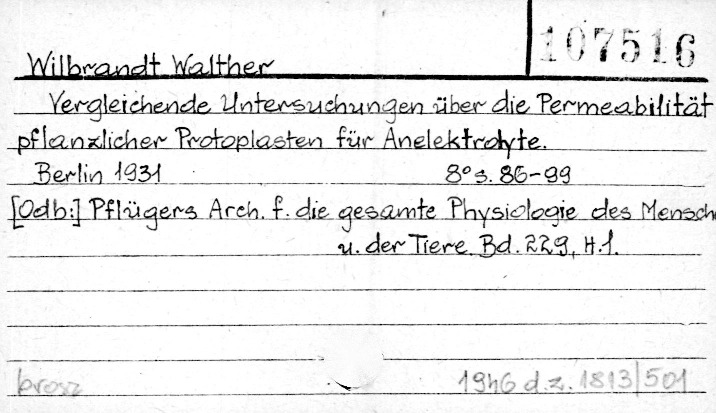 107516
Wilbrandt Walther
Vergleichende Untersuchungen über die Permeabilität
pflanzlicher Protoplasten für Anelektrolyte.
Berlin 1931 8° s. 86-99
[Odb:] Pflügers Arch. f. die gesamte Physiologie des Mensch
u. der Tiere. Bd. 229, H.1.
brosz
1946 d.z. 1813/501